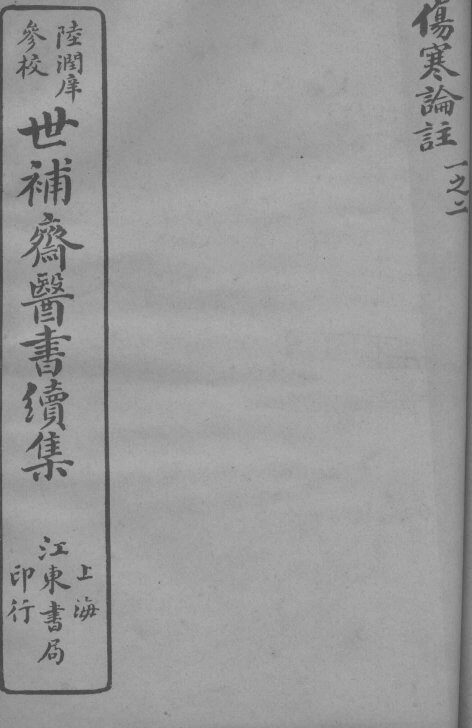 傷寒論註
一之二
陸潤庠
參校
世補齋醫書續集
上海
江東書局
印行